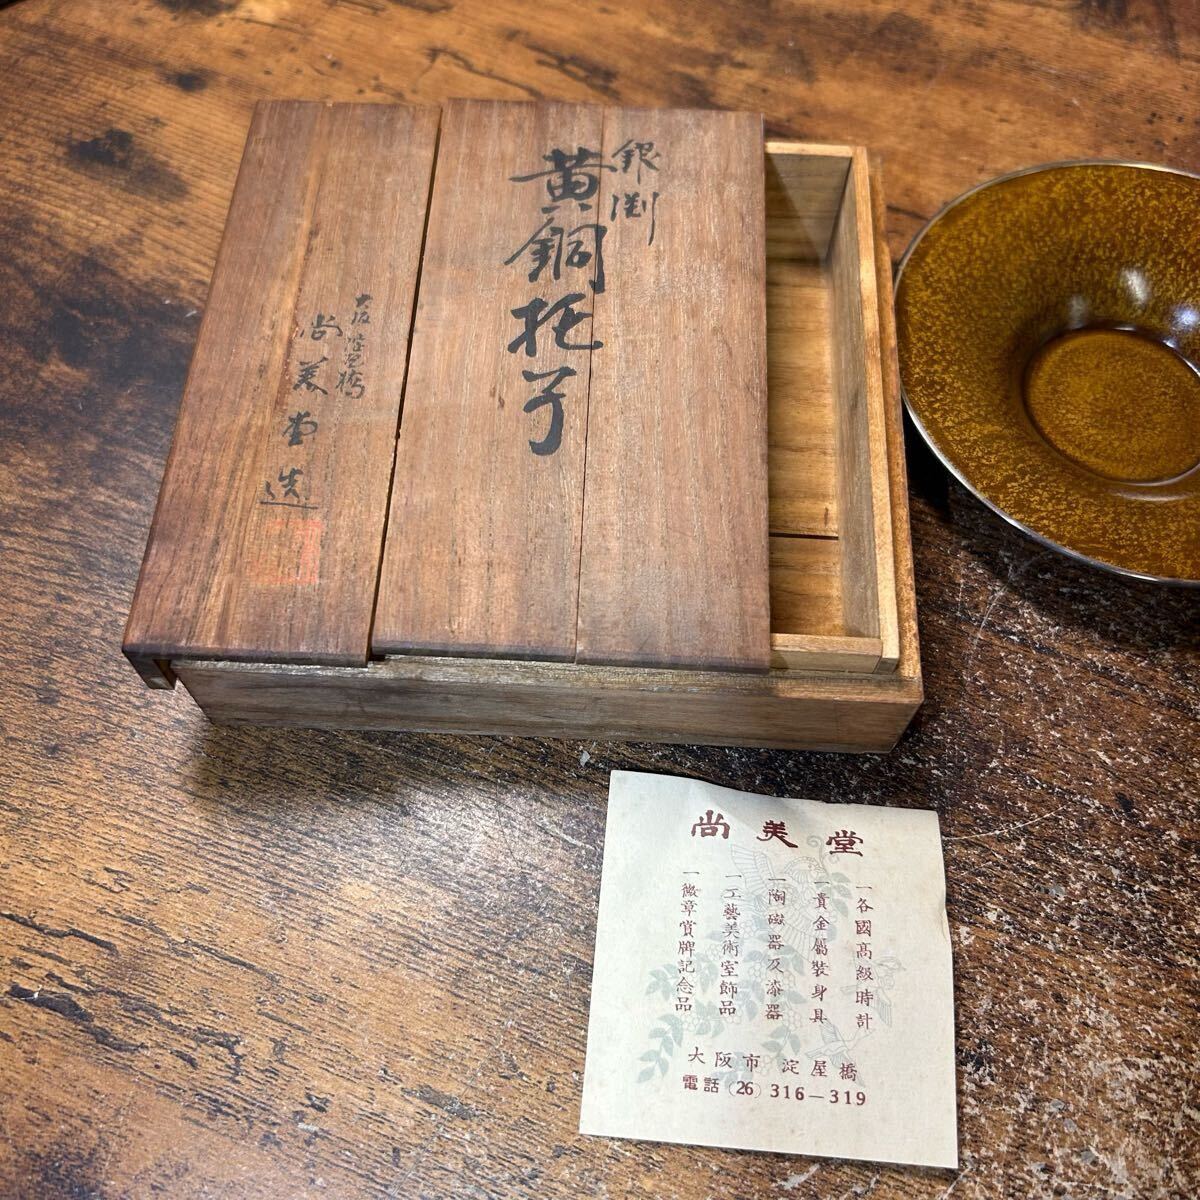 銀渕
黄銅托子
大阪淀屋橋
尚美堂造
尚美堂
一各國高級時計
一貴金屬裝身具
一陶磁器及漆器
一工藝美術室飾品
一徽章賞牌記念品
大阪市 淀屋橋
電話(26)316—319